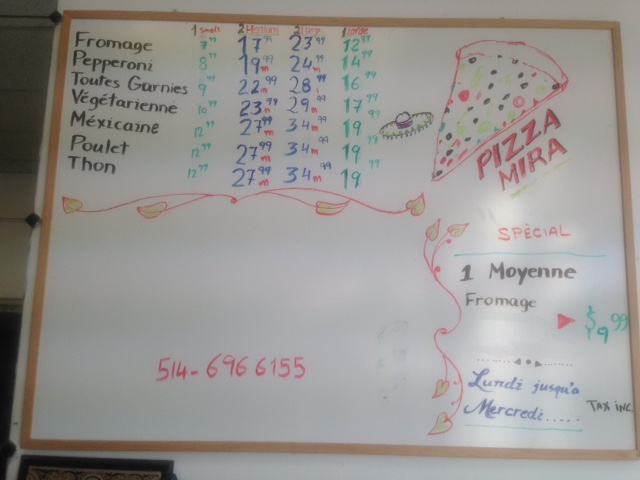 1 Small 2 Medium 2 Large 1 Large
Fromage 7 99 17 99 23 99 12 99
Pepperoni 8 99 19 99 24 99 14 99
Toutes Garnies 9 99 22 99 28 99 16 99
Végétarienne 10 99 23 99 29 99 17 99
Méxicaine 12 99 27 99 34 99 19 99
Poulet 12 99 27 99 34 99 19 99
Thon 12 99 27 99 34 99 19 99
PIZZA
MIRA
SPÉCIAL
1 Moyenne
Fromage
$9 99
Lundi jusqu'a
Mercredi.....
TAX inc
514-696 6155